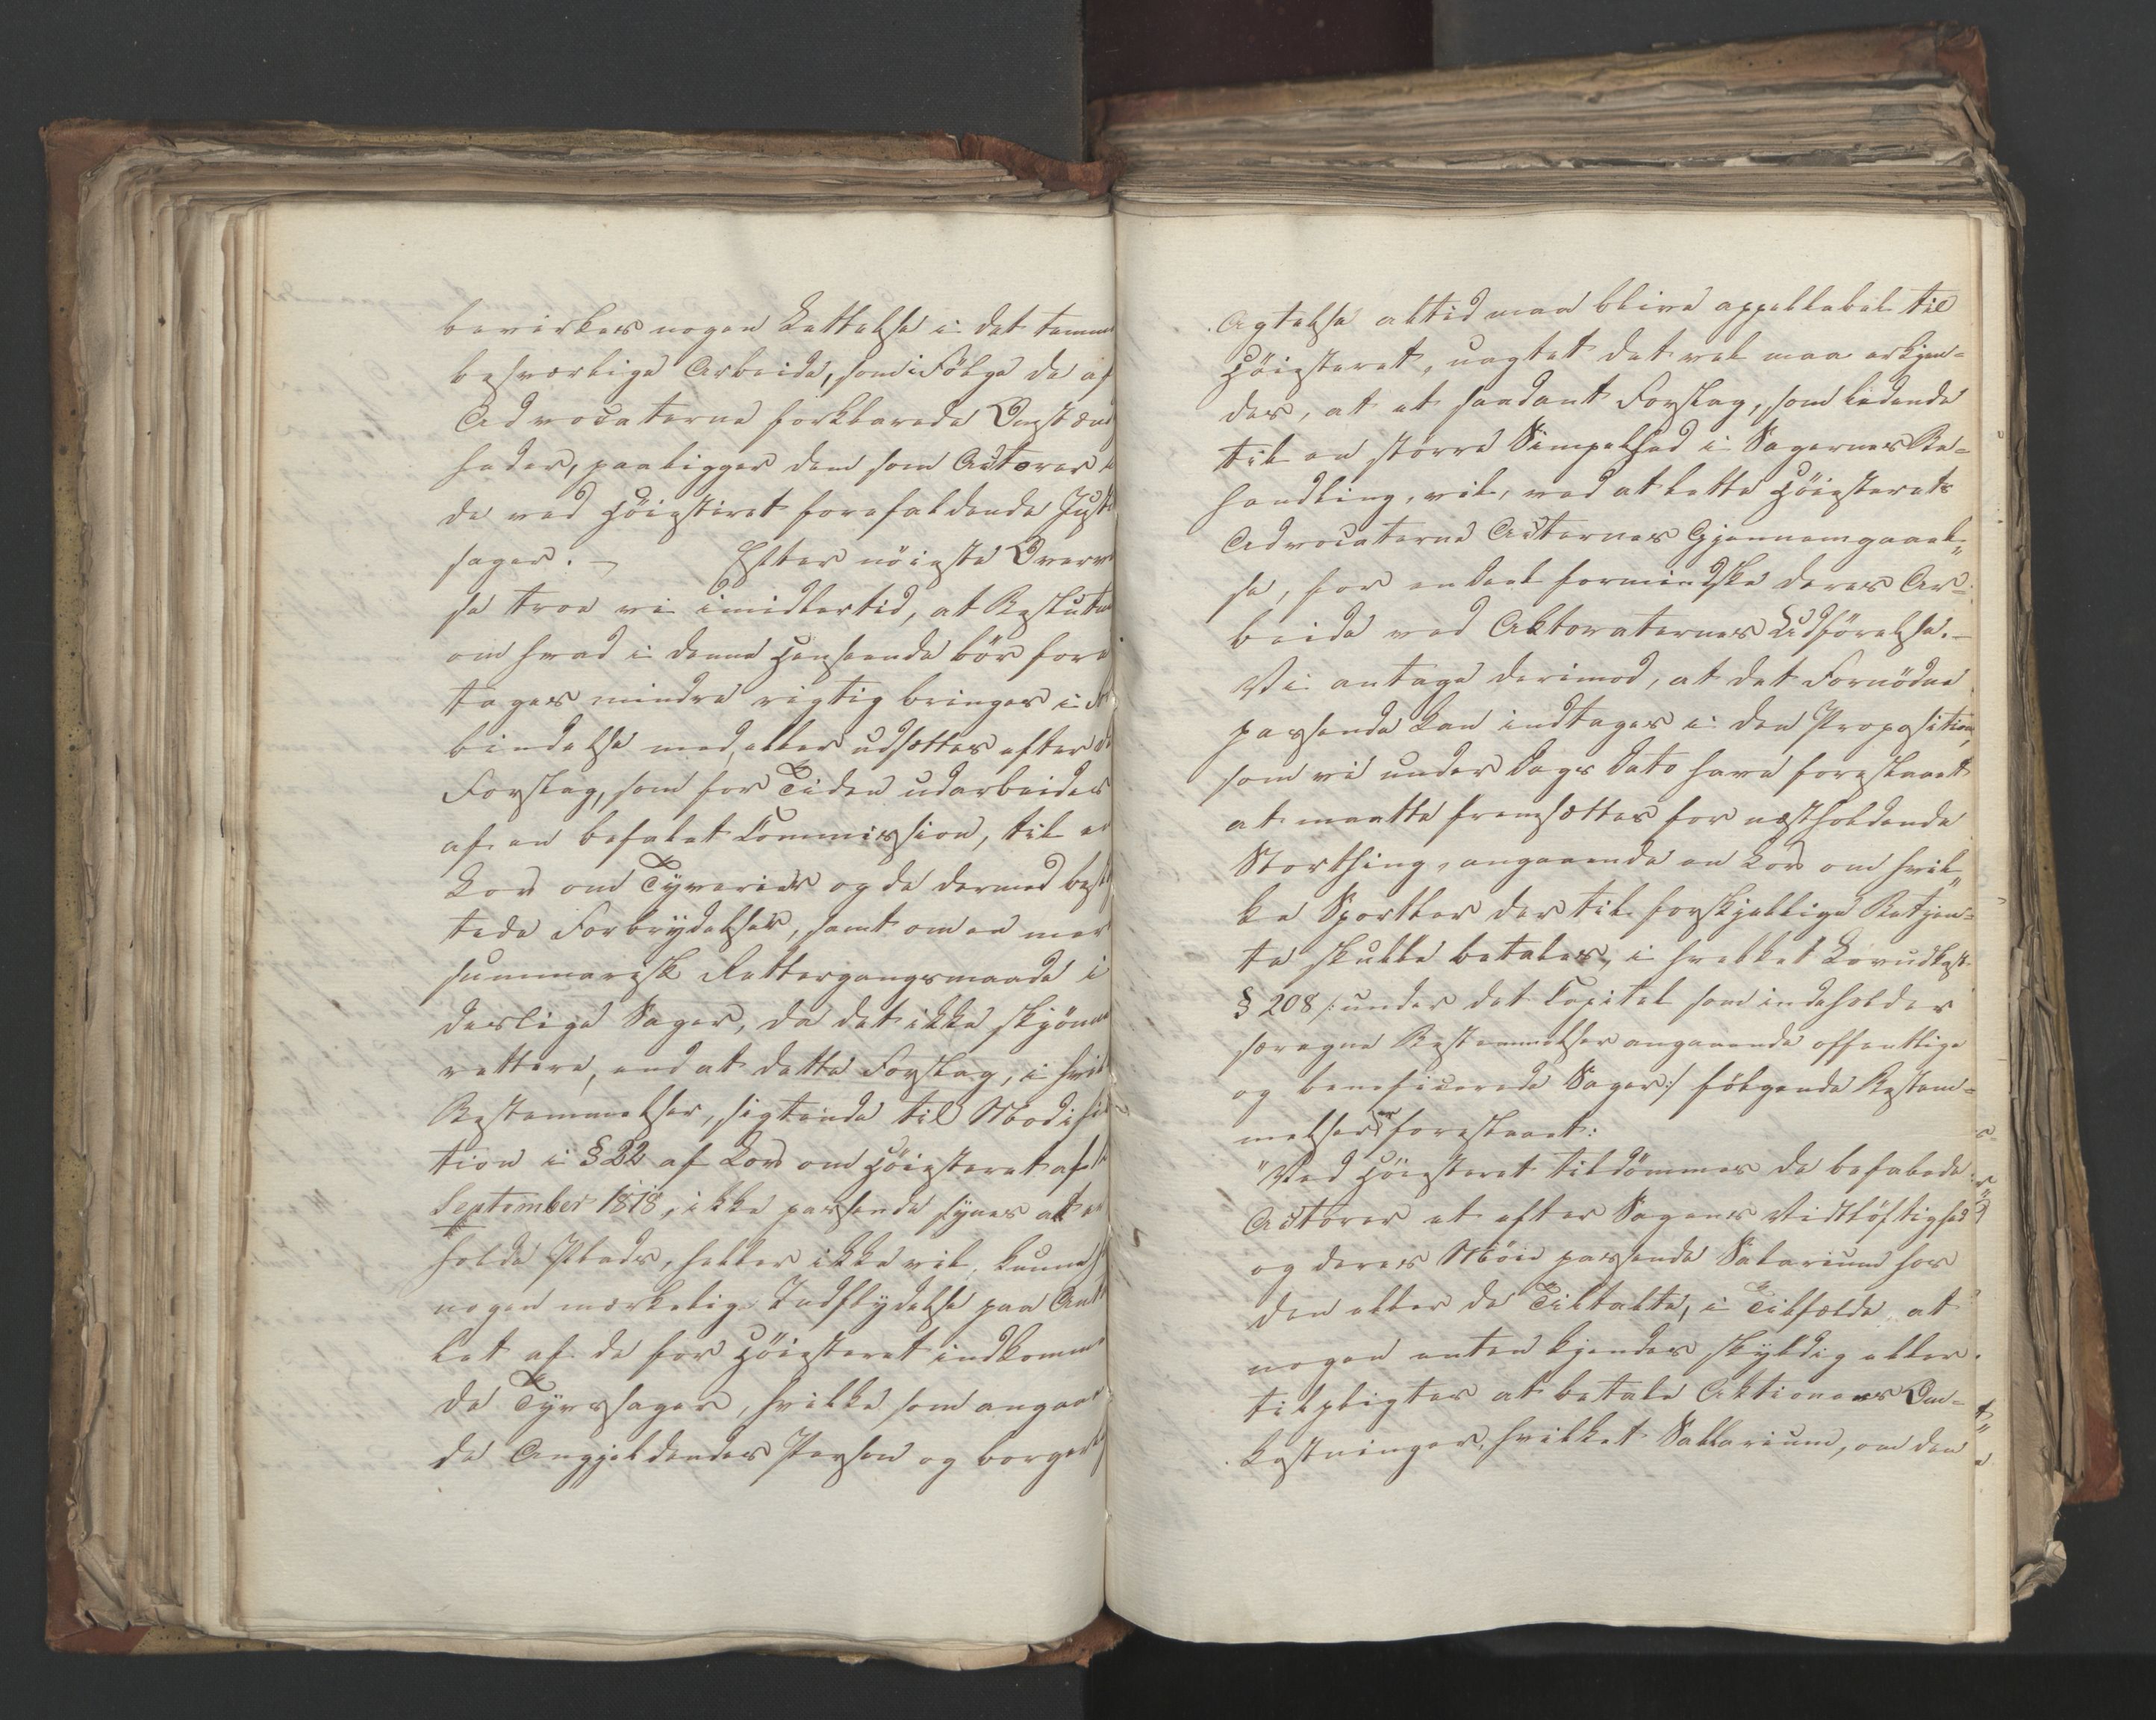 bevirkes nogen Lettelse i det temme
besværlige Arbeide, som i Følge de af
Advocaterne forklarede Omstænd
heder, paaligger dem som Actorer i
de ved Høiesteret forefaldende Justi
sager. – Efter nøieste Overve
se troe vi imidlertid, at Beslutn
om hvad i denne Henseende bør fore
tages mindre rigtig bringes i For
bindelse med, eller udsættes efter det
Forslag, som for Tiden udarbeides
af en befalet Commission, til en
Lov om Tyverier og de dermed besl
tede Forbrydelser, samt om en mer
summarisk Rettergangsmaade i
deslige Sager, da det ikke skjønne
rettere, end at dette Forslag, i hvil
Bestemmelser, sigtende til Modifica
tion i § 22 af Lov om Høiesteret af
September 1818, ikke passende synes at er
holde Plads, heller ikke vil kunne
nogen mærkelig Indflydelse paa Ant
let af de for Høiesteret indkomne
de Tyvssager, hvilke som angaae
de Angjeldendes Person og borgerlig
Agtelse altid maa blive appellabel til
Høiesteret, uagtet det vel maa erkjen=
des, at et saadant Forslag, som ledende
til en større Simpelhed i Sagernes Be=
handling, vil, ved at lette Høiesterets
Advocaterne Acternes Gjennemgaael„
se, for en deel formindske deres Ar=
beide ved Aktoraternes Udførelse. –
Vi antage derimod, at det Fornødne
passende kan indtages i den Proposition,
som vi under Dags Dato have foreslaaet
at maatte fremsættes for næstholdende
Storthing, angaaende en Lov om hvil„
ke Sportler der til forskjellige Betjen=
te skulle betales, i hvilket Lovudkast
§ 208 /: under det Capitel som indeholder
særegne Bestemmelser angaaende offentlige
og beneficerede Sager :/ følgende Bestem=
melser er foreslaaet:
"Ved Høiesteret tildømmes de befalede
Actorer et efter Sagens Vidtløftighed
og deres Møie passende Salarium hos
den eller de Tiltalte, i Tilfælde, at
nogen enten kjendes skyldig eller
tilpligtes at betale Aktionens Om=
kostninger, hvilket Sallarium, om den